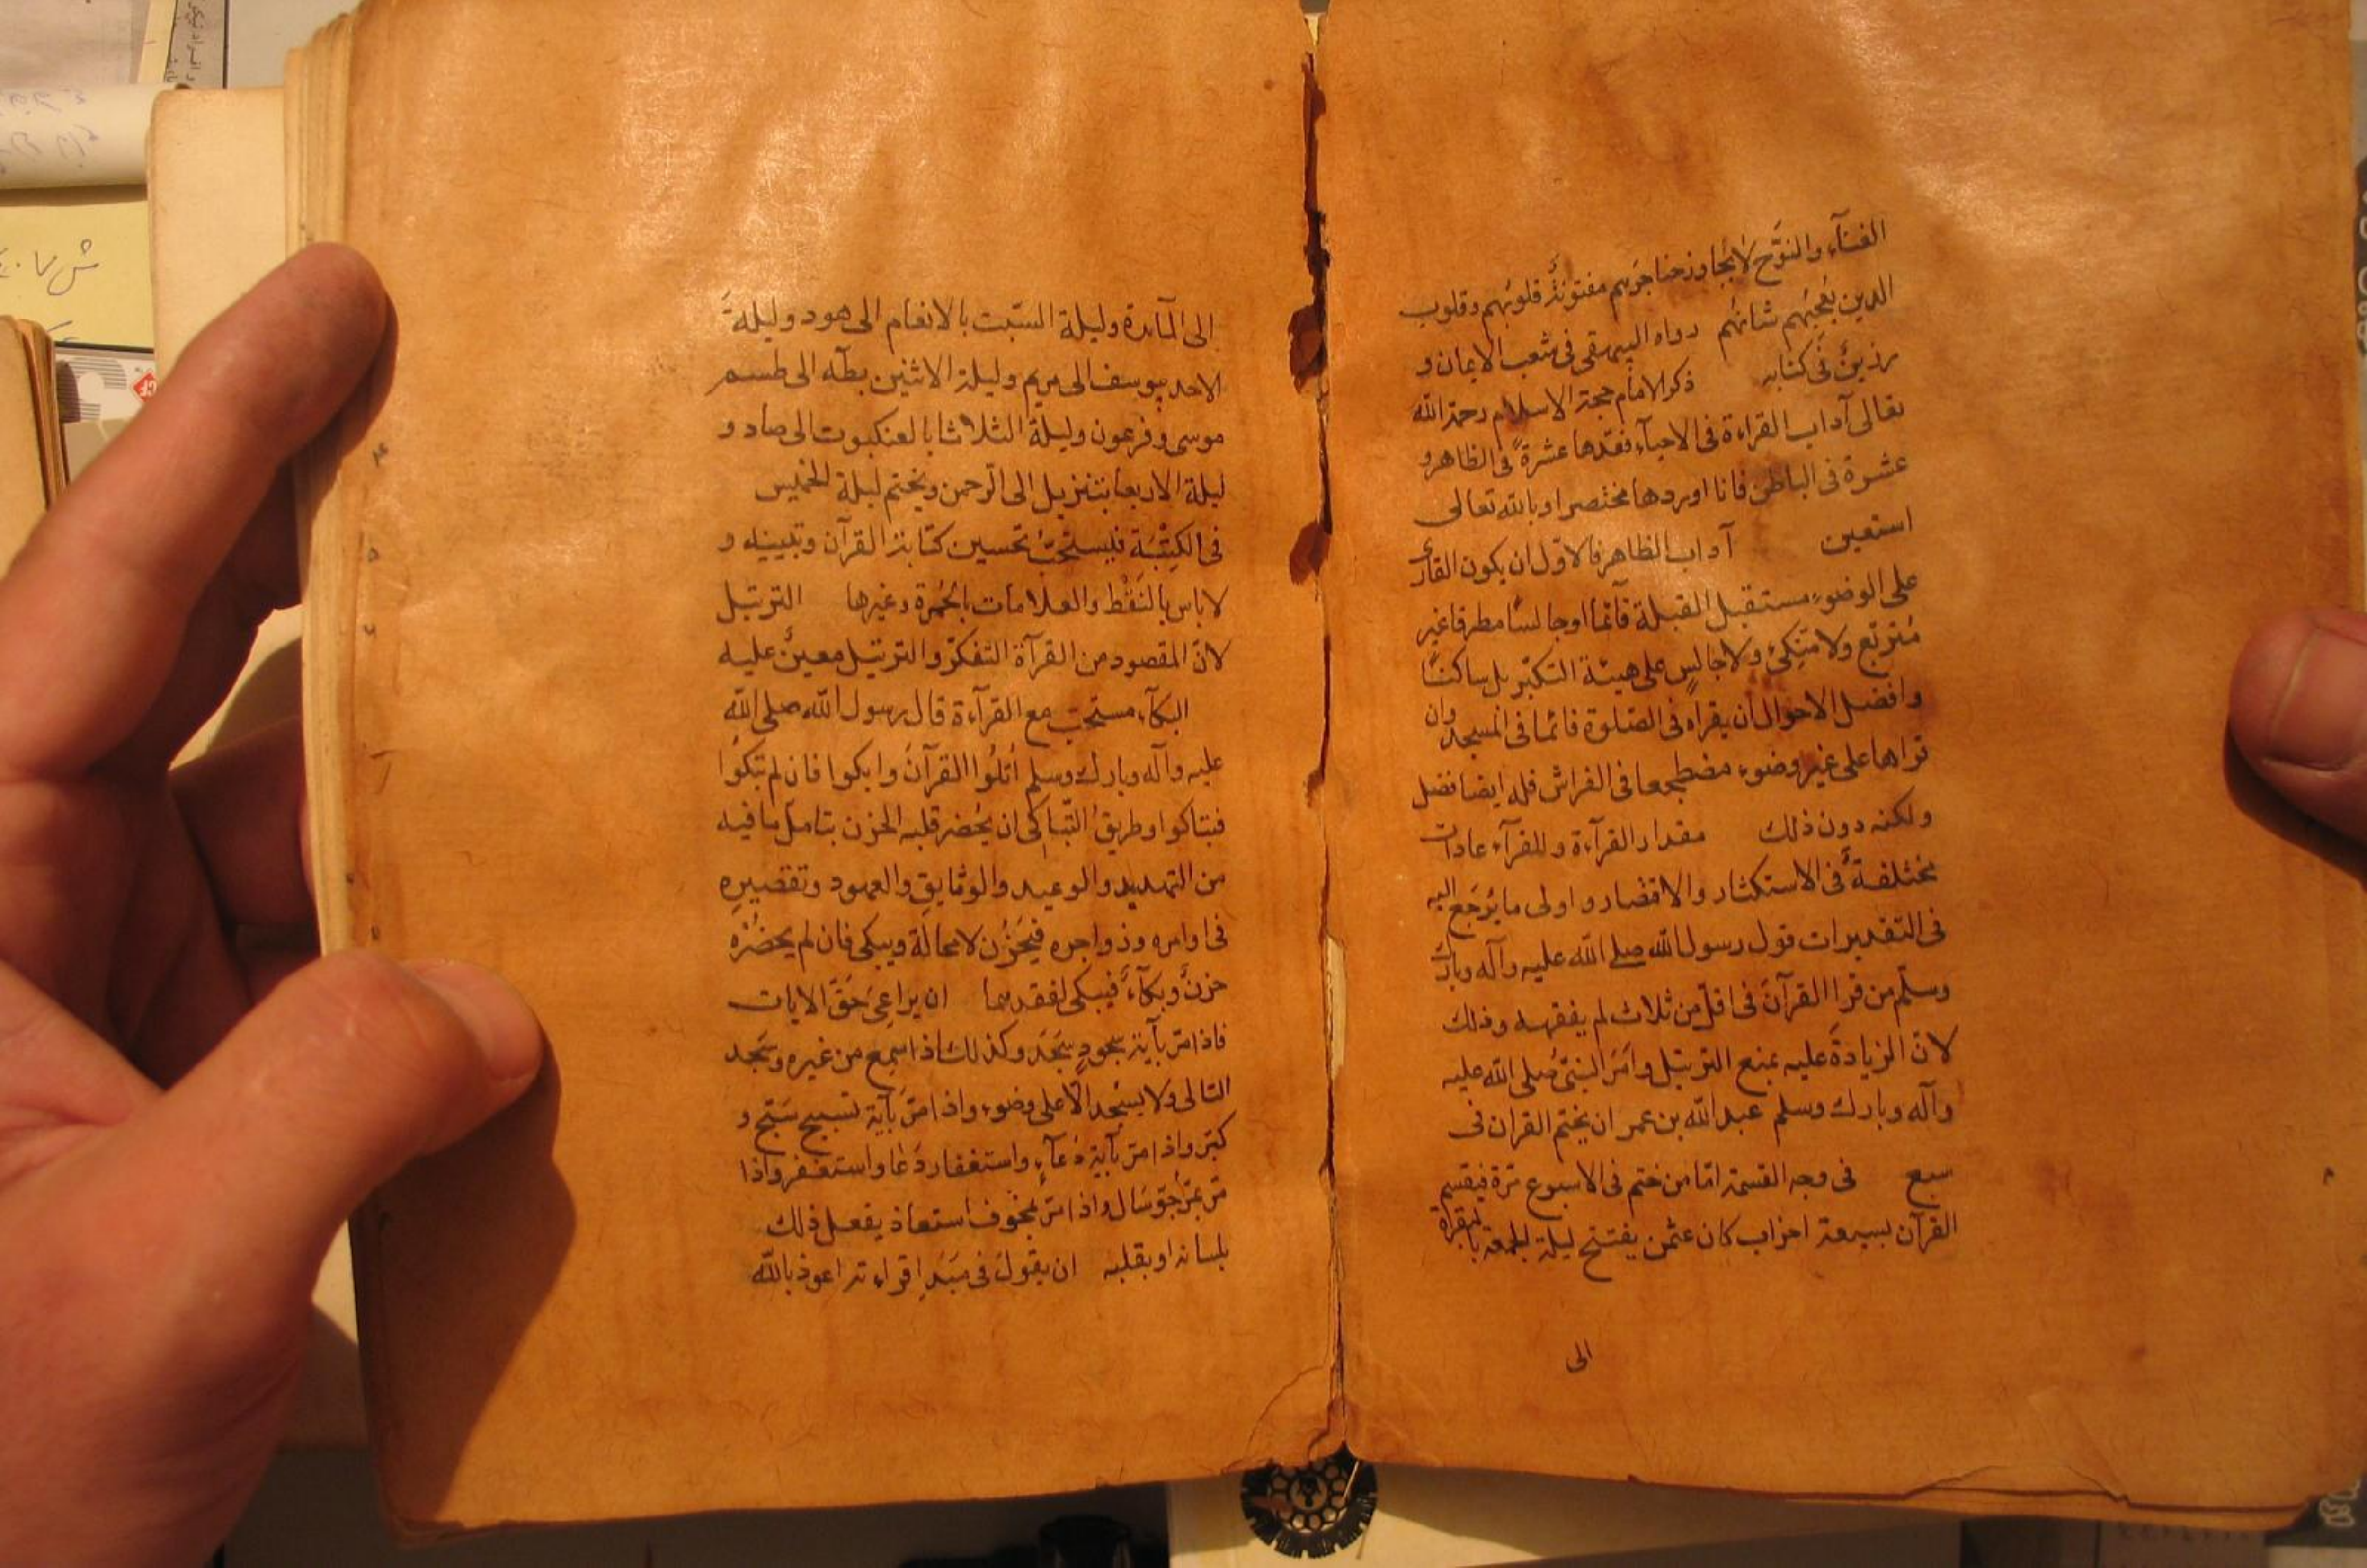 الغنآء والنوَّح لا يُجاوز حناجرَهم مفتونةٌ قلوبُهم وقلوب
الذين يُعجبُهم شانُهم رواه البيهقى فى شعب الايمان و
رزينٌ فى كتابه ذكر الامام حجة الاسلام رحمة الله
تعالى آداب القراءة فى الاحيآء فعدّها عشرةً فى الظاهر و
عشرة فى الباطن فانا اوردها مختصرا وبالله تعالى
استعين آداب الظاهر فالاوّل ان يكون القارى
على الوضوء مستقبل القبلة قائما او جالسًا مطرقا غير
مُتربّع ولا متكئٍ ولا جالسٍ على هيئة التكبّر بل ساكنًا
وافضل الاحوال ان يقراه فى الصّلوة قائما فى المسجد وان
قراها على غير وضوء مضطجعا فى الفراش فله ايضا فضل
ولكنه دون ذلك مقدار القرآءة وللقرآء عادات
مختلفةٌ فى الاستكثار والاقتصار و اولى ما يُرجَع اليه
فى التقديرات قول رسول الله صلى الله عليه وآله وبارك
وسلّم من قرا القرآن فى اقلّ من ثلاث لم يفقهه وذلك
لانّ الزيادةَ عليه يمنع الترتيل وامَرَ النبىّ صلى الله عليه
وآله وبارك وسلم عبد الله بن عمر ان يختم القران فى
سبع فى وجه القسمة امّا من ختم فى الاسبوع مرّة فيقسم
القرآن بسبعة احزاب كان عثمن يفتتح ليلة الجمعة بالبقرة
الى
الى المآئدة وليلة السّبت بالانعام الى هود وليلةَ
الاحد بيوسف الى مريم وليلة الاثنين بطٓه الى طسم
موسى وفرعون وليلة الثلاثا بالعنكبوت الى صاد و
ليلة الاربعا بتنزيل الى الرّحمن ويختم ليلة الخميس
فى الكِتْبَة فيستحبّ تحسين كتابة القرآن وتبيينه و
لا باس بالنَقْط والعلامات بالحُمرة وغيرها الترتيل
لانّ المقصود من القرآة التفكرّ والترتيل معينٌ عليه
البكآء مستحبّ مع القرآءة قال رسول الله صلى الله
عليه وآله وبارك وسلم اُتلُوا القرآنَ وابكوا فان لم تبكُوا
فتباكوا وطريقُ التّباكى ان يُحضر قلبه الحزن بتامل ما فيه
من التهديد والوعيد والوثايقِ والعهود وتقصيرِه
فى اوامره وزواجره فيَحزُن لا محالة ويبكى فان لم يحضُرْه
حزنٌ وبكآءٌ فيبكى لفقدهما ان يراعِىَ حَقَّ الايات
فاذا مرّ بآية سجودٍ سَجَدَ وكذلك اذا سمع من غيره وسَجد
التالى ولا يسجُد الّا على وضوء واذا مرّ بآية تسبيح سَبّح و
كبّر واذا مرّ بآية دُعآءٍ واستغفار دَعَا واستغفر واذا
مرّ بمَرْجوٍّ سَال واذا مرّ بمخوف استعاذ يفعل ذلك
بلسانه او بقلبه ان يقولَ فى مبَدإ قراءته اعوذ بالله